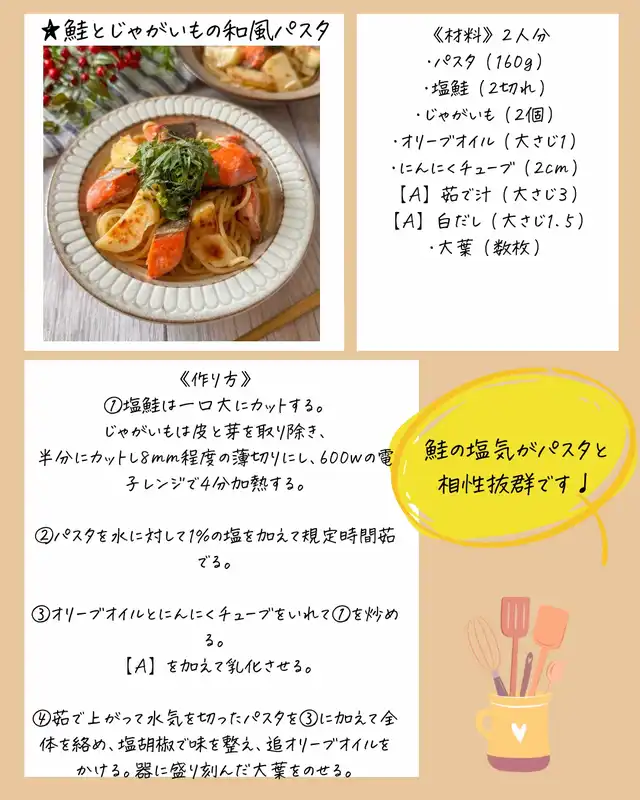 ★鮭とじゃがいもの和風パスタ
《材料》2人分
・パスタ(160g)
・塩鮭(2切れ)
・じゃがいも(2個)
・オリーブオイル(大さじ1)
・にんにくチューブ(2cm)
【A】茹で汁(大さじ3)
【A】白だし(大さじ1.5)
・大葉(数枚)
《作り方》
①塩鮭は一口大にカットする。
じゃがいもは皮と芽を取り除き、
半分にカットし8mm程度の薄切りにし、600wの電
子レンジで4分加熱する。
②パスタを水に対して1%の塩を加えて規定時間茹
でる。
③オリーブオイルとにんにくチューブをいれて①を炒め
る。
【A】を加えて乳化させる。
④茹で上がって水気を切ったパスタを③に加えて全
体を絡め、塩胡椒で味を整え、追オリーブオイルを
かける。器に盛り刻んだ大葉をのせる。
鮭の塩気がパスタと
相性抜群です♩